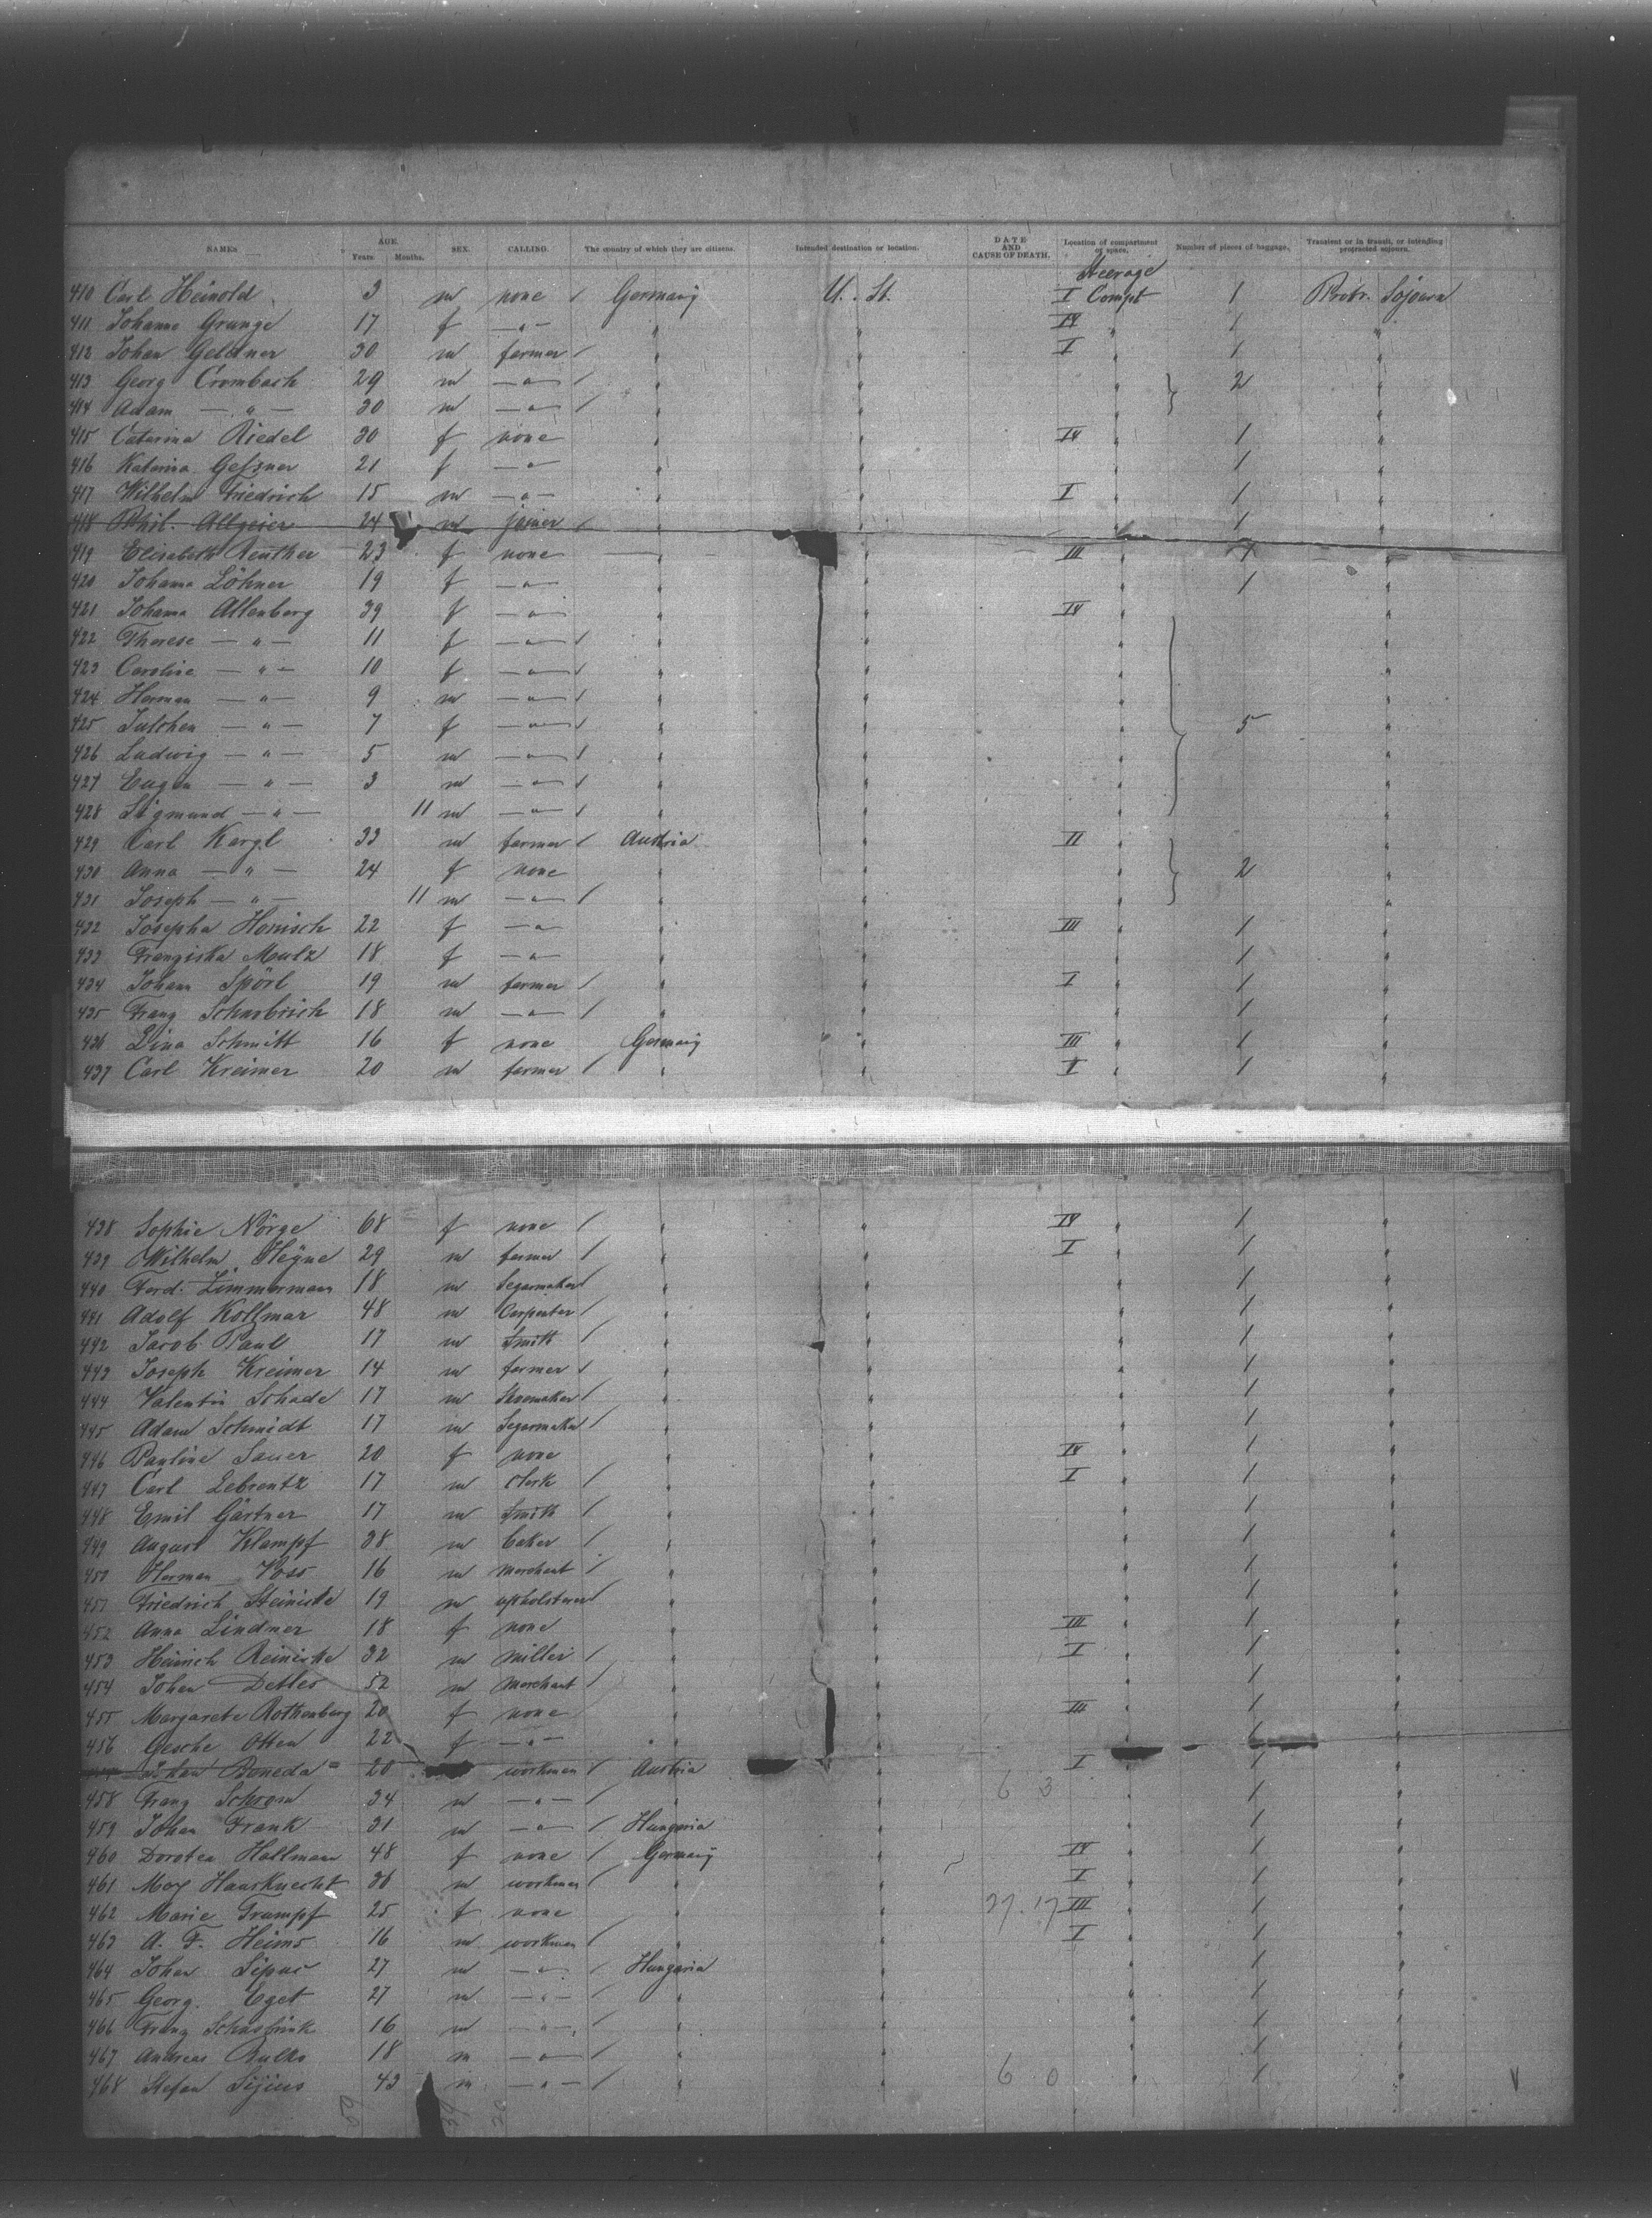 NAMES AGE. Years Months. SEX. CALLING. The country of which they are citizens. Intended destination or location. DATE AND CAUSE OF DEATH. Location of compartment or space. Number of pieces of baggage. Transient or in transit, or intending protracted sojourn.
Steerage
410 Carl Heinold 3 m none / Germany U. St. I Compt 1 Protr. Sojourn
411 Johanna Grunge 17 f —"— " " IV " 1 "
412 Johan Geldner 30 m farmer / " " I " 1 "
413 Georg Crombach 29 m —"— / " " " 2 "
414 Adam —"— 30 m —"— / " " " "
415 Catarina Riedel 30 f none " " IV " 1 "
416 Katarina Geszner 21 f —"— " " " 1 "
417 Wilhelm Friedrich 15 m —"— " " I " 1 "
418 Phil. Allgeier 24 m joiner / 1
419 Elisabeth Reuther 23 f none " " III " 1 "
420 Johanna Löhner 19 f —"— " " " 1 "
421 Johanna Altenberg 39 f —"— " " IV " "
422 Therese —"— 11 f —"— / " " " "
423 Caroline —"— 10 f —"— / " " " "
424 Herman —"— 9 m —"— / " " " "
425 Julchen —"— 7 f —"— / " " " 5 "
426 Ludwig —"— 5 m —"— / " " " "
427 Eugen —"— 3 m —"— / " " " "
428 Sigmund —"— 11 m —"— / " " " "
429 Carl Kargl 33 m farmer / Austria " II " "
430 Anna —"— 24 f none " " " 2 "
431 Joseph —"— 11 m —"— / " " " "
432 Josepha Honisch 22 f —"— " " III " 1 "
433 Franziska Mulz 18 f —"— " " " 1 "
434 Johann Spörl 19 m farmer / " " I " 1 "
435 Franz 18 m —"— / " " " 1 "
436 Lina Schmitt 16 f none Germany " III " 1 "
437 Carl Kreimer 20 m farmer / " " I " 1 "
438 Sophie Nörge 68 f none / " " IV " 1 "
439 Wilhelm Heyne 29 m farmer / " " I " 1 "
440 Ferd. Zimmermann 18 m Segarmaker / " " " 1 "
441 Adolf Kollmar 48 m Carpenter / " " " 1 "
442 Jacob Paul 17 m Smith / " " " 1 "
443 Joseph Kreimer 14 m farmer / " " " 1 "
444 Valentin Schade 17 m Shoemaker / " " " 1 "
445 Adam Schmidt 17 m Segarmaker / " " " 1 "
446 Pauline Sauer 20 f none " " IV " 1 "
447 Carl Lebrentz 17 m clerk / " " I " 1 "
448 Emil Gärtner 17 m Smith / " " " 1 "
449 August Klampf 38 m baker / " " " 1 "
450 Herman Voss 16 m merchant / " " " 1 "
451 Friedrich Steinicke 19 m upholsterer / " " " 1 "
452 Anna Lindner 18 f none " " III " 1 "
453 Heinrich Reinicke 32 m miller / " " I " 1 "
454 Johan Detles 52 m merchant / " " " 1 "
455 Margarete Rothenberg 20 f none " " III " 1 "
456 Gesche Otten 22 f —"— " " " 1 "
Johan Boneda 20 workman / Austria " I " 1 "
458 Franz Schram 34 m —"— / " " 6 3 " 1 "
459 Johan Frank 31 m —"— / Hungaria " " 1 "
460 Dorotea Hallmann 48 f none / Germany " IV " 1 "
461 Max Hausknecht 36 m workman / " " I " 1 "
462 Marie Trumpf 25 f none " " 27. 17 III " 1 "
463 A. F. Heims 16 m workman / " " I " 1 "
464 Johan Sipus 27 m —"— / Hungaria " " 1 "
465 Georg. Eget 27 m —"— / " " " 1 "
466 Franz 16 m —"— / " " " 1 "
467 Andreas Bulko 18 m —"— / " " " 1 "
468 Stefan 43 m —"— / " " 6 0 " 1 " V